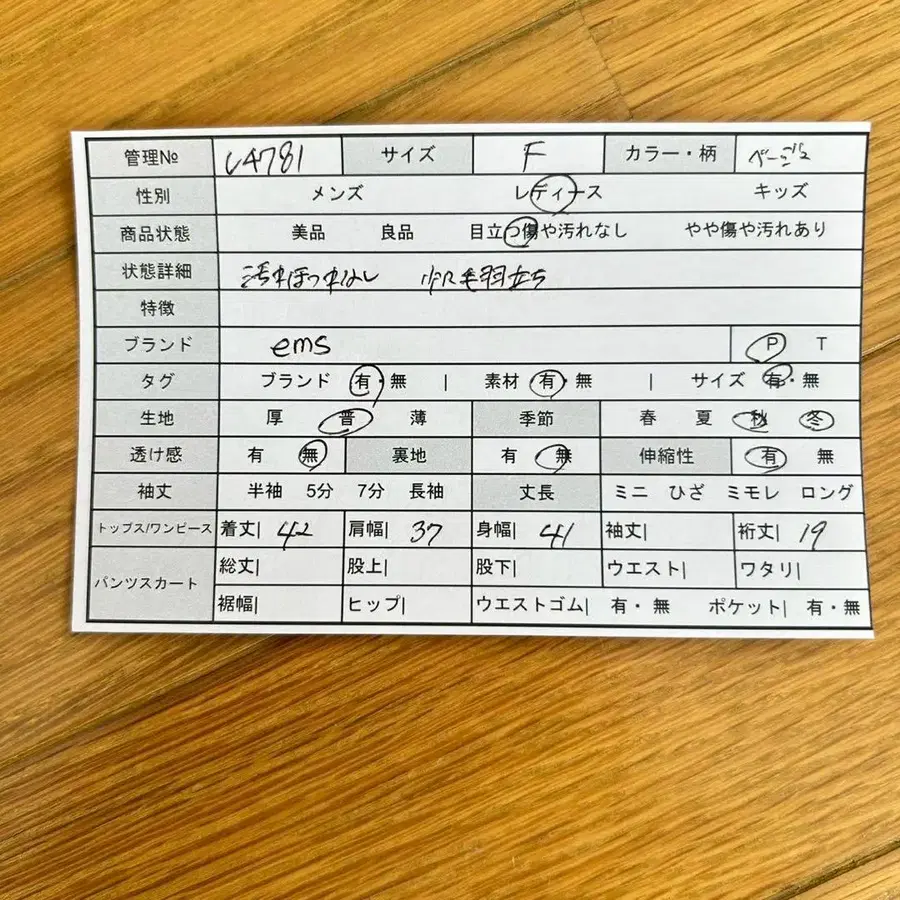 管理№ L4781 サイズ F カラー・柄 ベージュ
性別 メンズ レディース キッズ
商品状態 美品 良品 目立つ傷や汚れなし やや傷や汚れあり
状態詳細 汚れほつれなし 少し毛羽立ち
特徴
ブランド ems P T
タグ ブランド 有・無 | 素材 有・無 | サイズ 有・無
生地 厚 普 薄 季節 春 夏 秋 冬
透け感 有 無 裏地 有 無 伸縮性 有 無
袖丈 半袖 5分 7分 長袖 丈長 ミニ ひざ ミモレ ロング
トップス/ワンピース 着丈| 42 肩幅| 37 身幅| 41 袖丈| 裄丈| 19
パンツスカート 総丈| 股上| 股下| ウエスト| ワタリ|
裾幅| ヒップ| ウエストゴム| 有・無 ポケット| 有・無